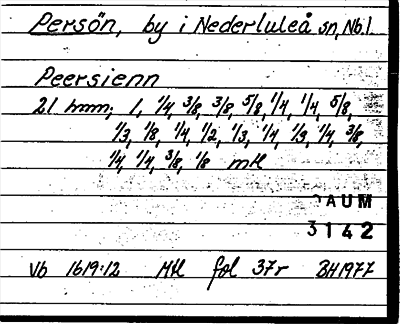 Persön, by i Nederluleå sn, Nb.l.
Peersienn
21 hmn; 1, 1/4, 3/8, 3/8, 5/8, 1/4, 1/4, 5/8,
1/3, 1/8, 1/4, 1/2, 1/3, 1/4, 1/3, 1/4, 3/8,
1/4, 1/4, 3/8, 1/8 mtl
DAUM
3142
Vb 1619:12 Mtl fol 37r BH1977